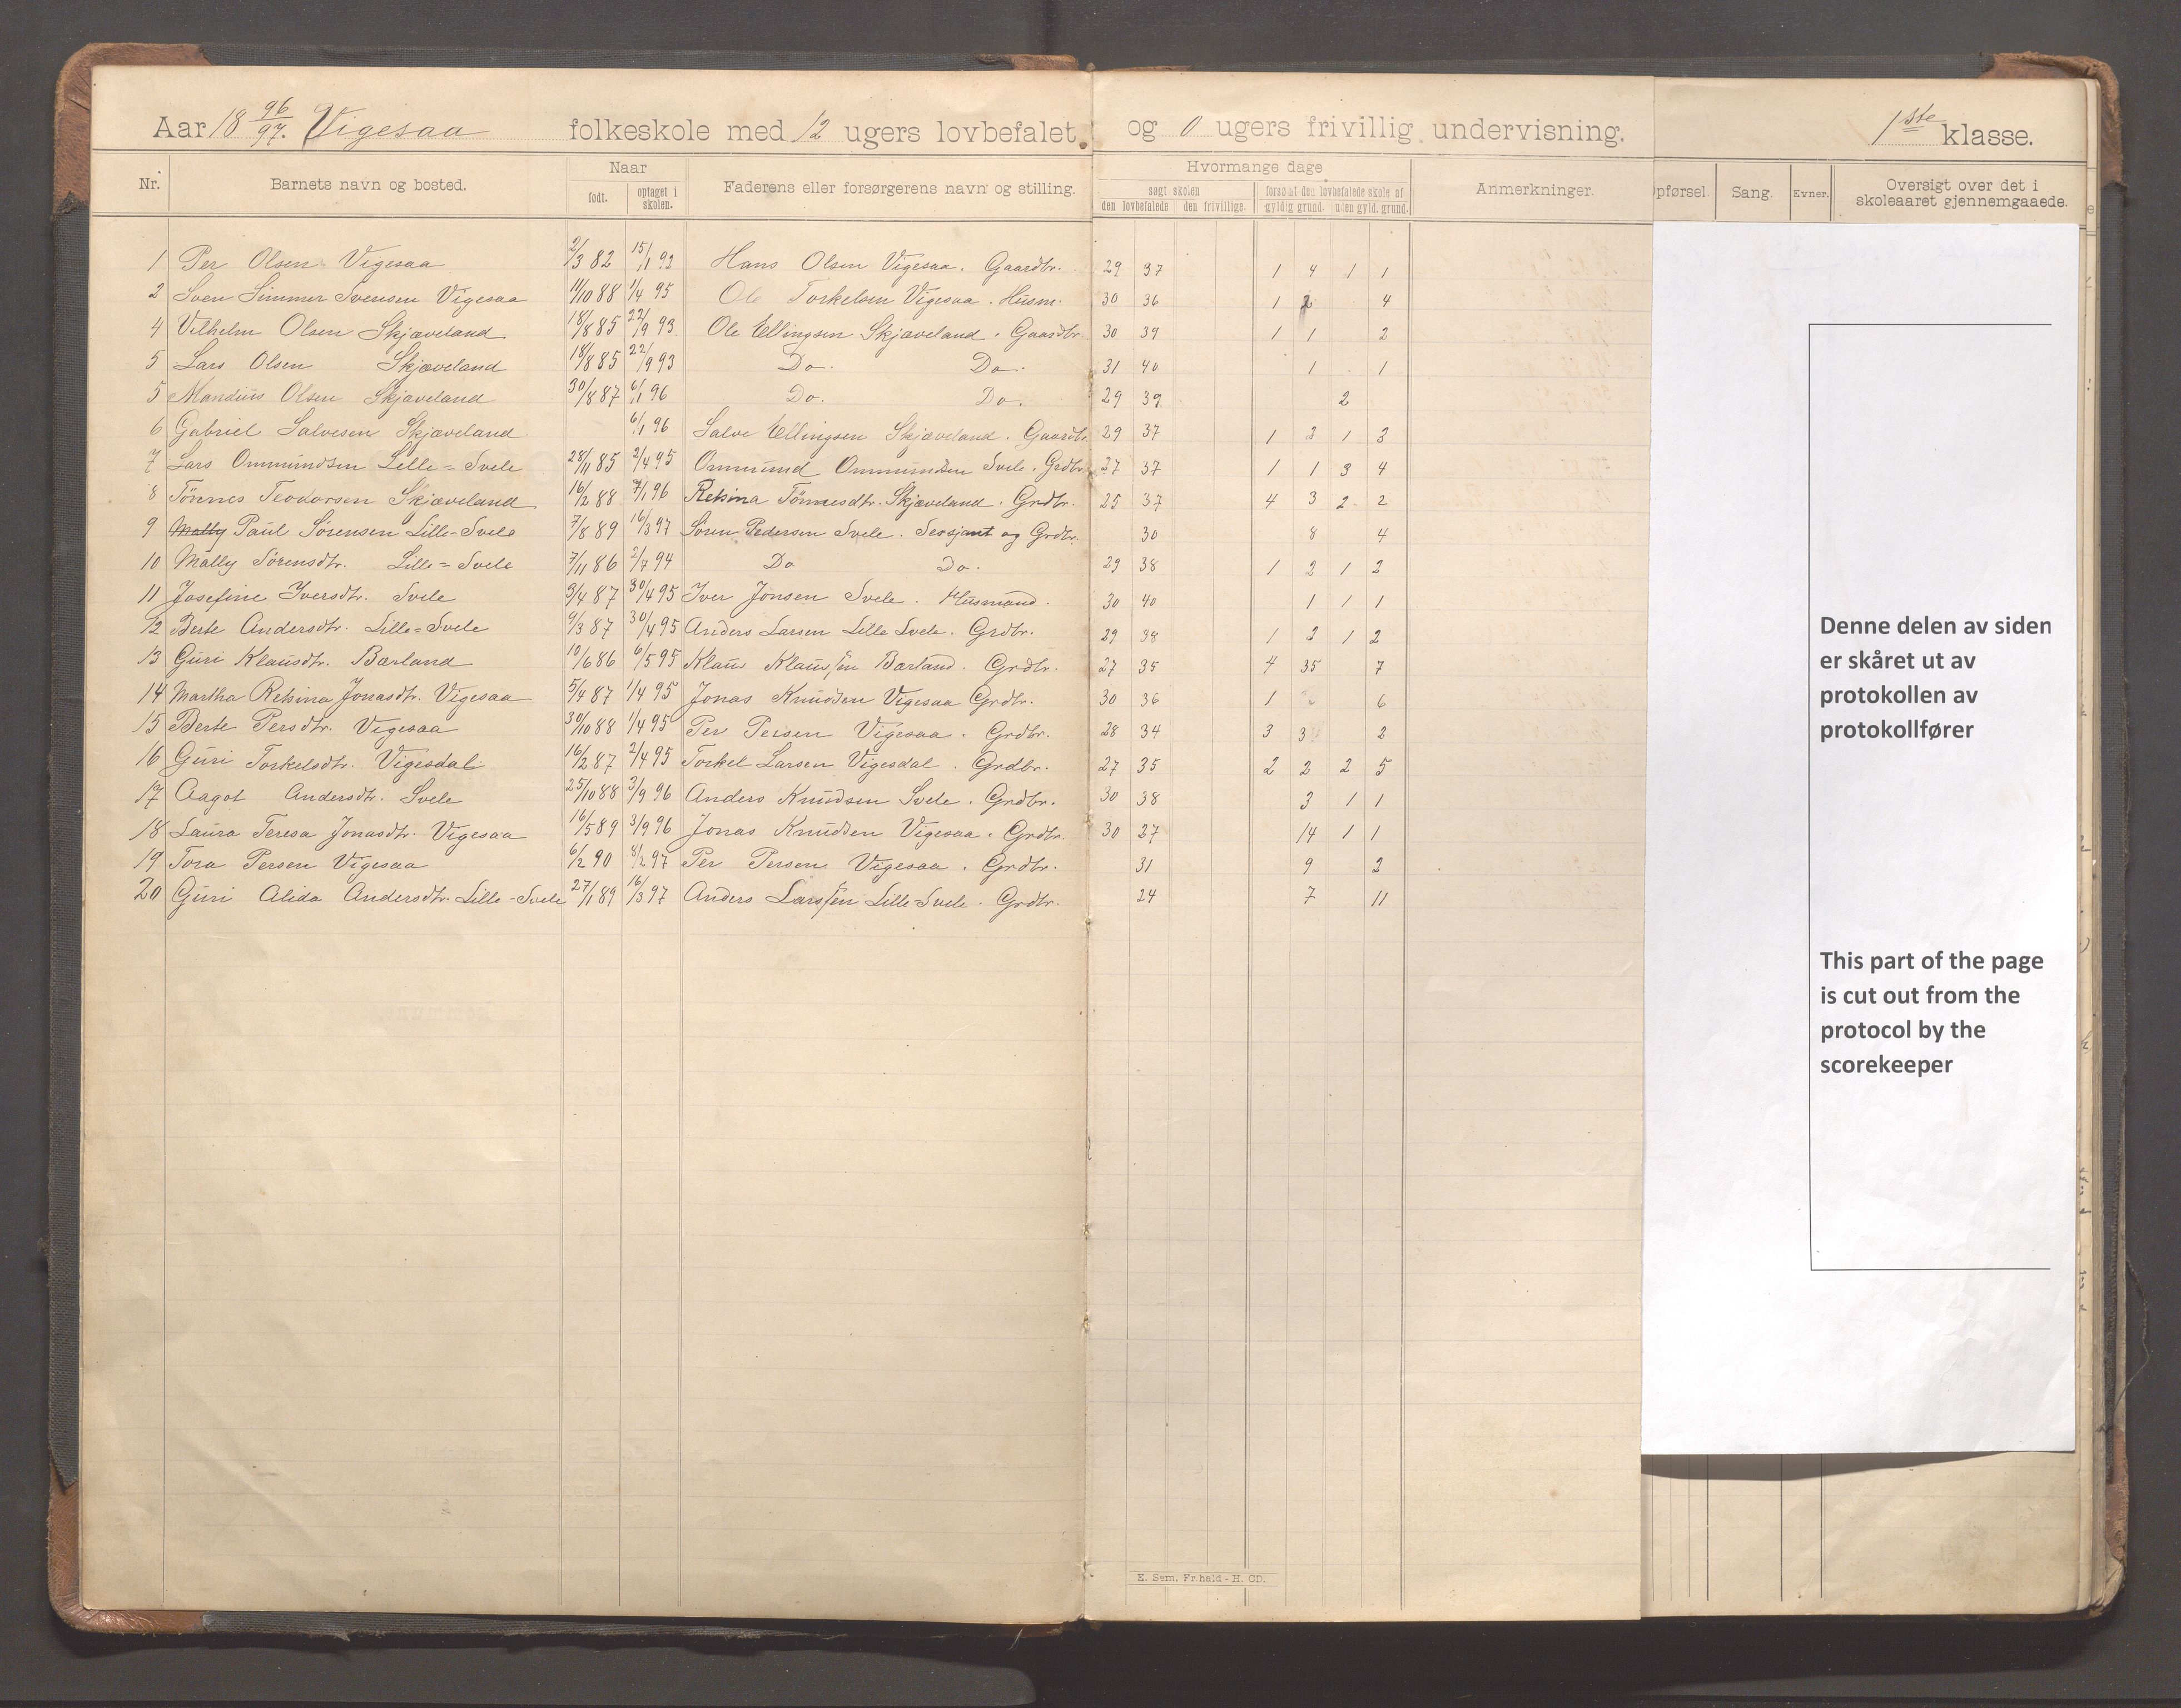 Aar 18 96/97. Vigesaa folkeskole med 12 ugers lovbefalet og 0 ugers frivillig undervisning. 1ste klasse.
Nr. Barnets navn og bosted. Naar født. optaget i skolen. Faderens eller forsørgerens navn og stilling. Hvormange dage søgt skolen den lovbefalede den frivillige. forsømt den lovbefalede skole af gyldig grund. uden gyld. grund. Anmerkninger. Opførsel. Sang. Evner. Oversigt over det i skoleaaret gjennemgaaede.
1 Per Olsen Vigesaa 2/3 82 15/1 92 Hans Olsen Vigesaa. Gaardbr. 29 37 1 4 1 1
2 Sven Simmer Svensen Vigesaa 11/10 88 1/4 95 Ole Torkelsen Vigesaa. Husm. 30 36 1 2 4
4 Vilhelm Olsen Skjæveland 18/8 85 22/9 93 Ole Ellingsen Skjæveland. Gaardbr. 30 39 1 1 2
5 Lars Olsen Skjæveland 18/8 85 22/9 93 Do. Do. 31 40 1 1
5 Mandius Olsen Skjæveland 30/8 87 6/1 96 Do. Do. 29 39 2
6 Gabriel Salvesen Skjæveland 6/1 96 Salve Ellingsen Skjæveland. Gaardbr. 29 37 1 3 1 3
7 Lars Ommundsen Lille=Svele 28/11 85 2/4 95 Ommund Ommundsen Svele. Grdbr. 27 37 1 1 3 4
8 Tønnes Teodorsen Skjæveland 16/2 88 7/1 96 Retsina Tønnesdtr. Skjæveland. Grdbr. 25 37 4 3 2 2
9 Mally Paul Sørensen Lille-Svele 7/8 89 16/3 97 Søren Pedersen Svele. Sersjant og Grdbr. 30 8 4
10 Mally Sørensdtr. Lille=Svele 7/11 86 2/7 94 Do Do. 29 38 1 2 1 2
11 Josefine Iversdtr. Svele 3/4 87 30/4 95 Iver Jonsen Svele. Husmand. 30 40 1 1 1
12 Berte Andersdtr. Lille=Svele 9/3 87 30/4 95 Anders Larsen Lille Svele. Grdbr. 29 38 1 2 1 2
13 Guri Klausdtr. Barland 10/6 86 6/5 95 Klaus Klausen Barland. Grdbr. 27 35 4 35 7
14 Martha Retsina Jonasdtr. Vigesaa 5/4 87 1/4 95 Jonas Knudsen Vigesaa Grdbr. 30 36 1 6
15 Berte Persdtr. Vigesaa 30/10 88 1/4 95 Per Persen Vigesaa. Grdbr. 28 34 3 3 2
16 Guri Torkelsdtr. Vigesdal 16/2 87 2/4 95 Torkel Larsen Vigesdal. Grdbr. 27 35 2 2 2 5
17 Aagot Andersdtr. Svele 25/10 88 3/9 96 Anders Knudsen Svele. Grdbr. 30 38 3 1 1
18 Laura Teresa Jonasdtr. Vigesaa 16/5 89 3/9 96 Jonas Knudsen Vigesaa. Grdbr. 30 27 14 1 1
19 Tora Persen Vigesaa 6/2 90 8/2 97 Per Persen Vigesaa. Grdbr. 31 9 2
20 Guri Alida Andersdtr. Lille-Svele 27/1 89 16/3 97 Anders Larssen Lille-Svele. Grdbr. 24 7 11
Denne delen av siden
er skåret ut av
protokollen av
protokollfører
This part of the page
is cut out from the
protocol by the
scorekeeper
E. Sem, Fr.hald - H. CD.